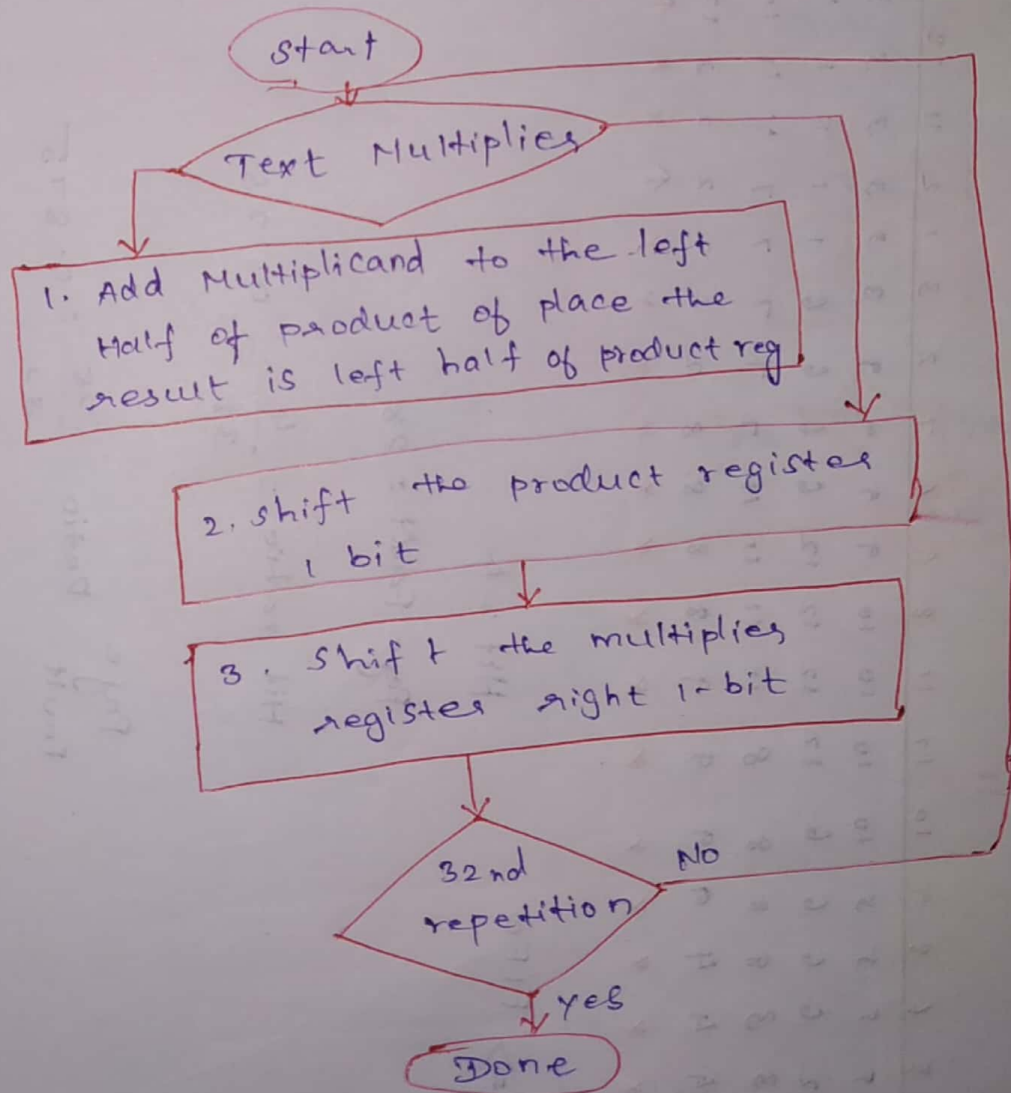 Start
Text Multiplier
1. Add Multiplicand to the left
Half of product of place the
result is left half of product reg
2. shift the product register
1 bit
3. Shift the multiplier
register right 1-bit
32nd
repetition
No
yes
Done